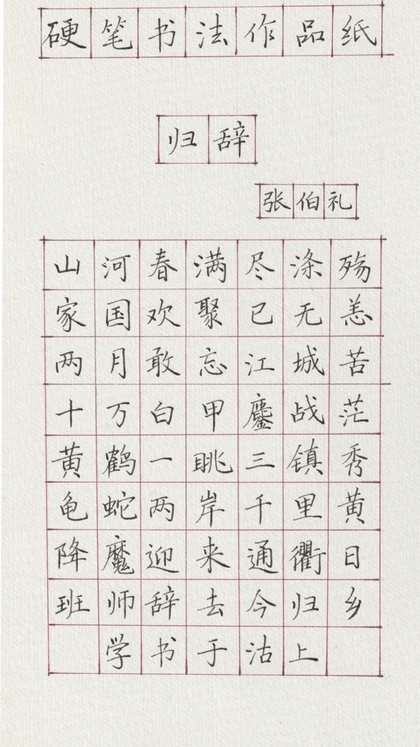 硬笔书法作品纸
归辞
张伯礼
山河春满尽涤殇
家国欢聚已无恙
两月敢忘江城苦
十万白甲鏖战茫
黄鹤一眺三镇秀
龟蛇两岸千里黄
降魔迎来通衢日
班师辞去今归乡
学书于沽上